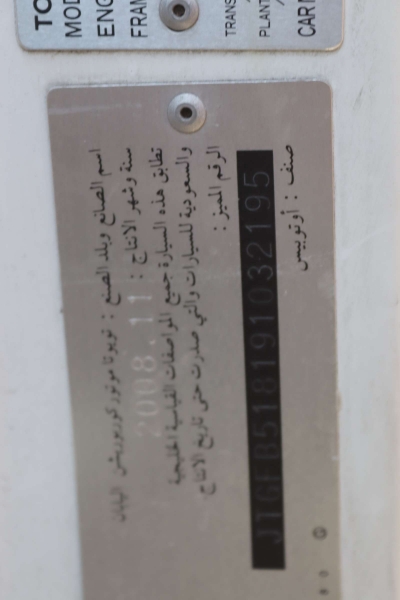 TO
MOD
ENG
FRAM
TRANS
PLANT
CAR
اسم الصانع وبلد الصنع : تويوتا موتور كوربوريشن اليابان
سنة وشهر الانتاج : 2008.11
تطابق هذه السيارة جميع المواصفات القياسية الخليجية
والسعودية للسيارات والتي صدرت حتى تاريخ الانتاج.
الرقم المميز :
JTGFB518191032195
صنف : أوتوبيس